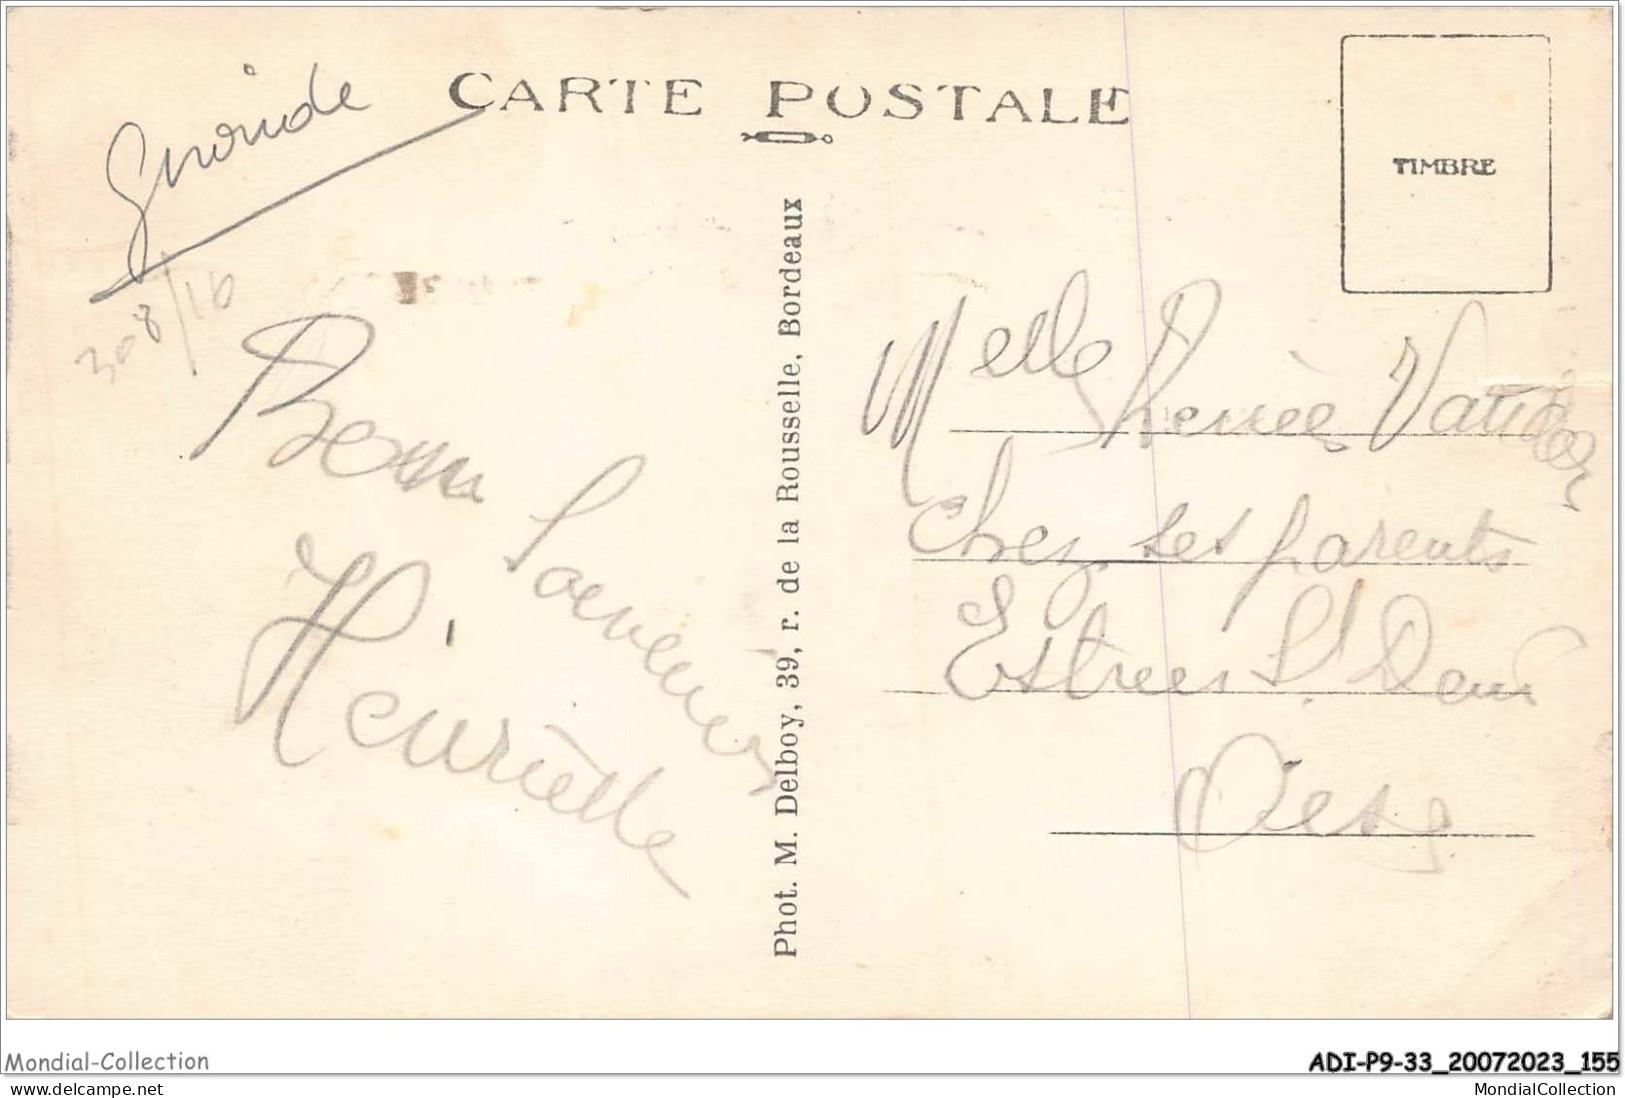 CARTE POSTALE
Gironde
TIMBRE
308/10
Bons Souvenirs
Henriette
Phot. M. Delboy, 39, r. de la Rousselle, Bordeaux
Melle Renée
Chez ses parents
Estrees St Denis
Oise
Mondial-Collection
ADI-P9-33_20072023_155
https://www.delcampe.net
MondialCollection